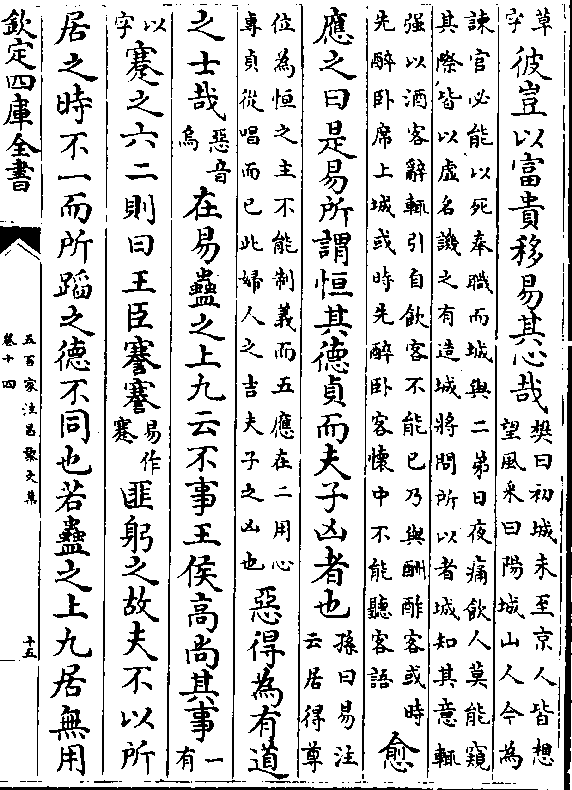 草
字
彼豈以富貴移易其心哉
樊曰初城未至京人皆想
望風采曰陽城山人今為
諫官必能以死奉職而城與二第日夜痛飲人莫能窺
其際皆以虛名譏之有造城將問所以者城知其意輒
强以酒客辭輒引自飲客不能已乃與酬酢客或時
先醉卧席上城或時先醉卧客懷中不能聽客語
愈
應之曰是易所謂恒其德貞而夫子凶者也
孫曰易注
云居得尊
位為恒之主不能制義而五應在二用心
專貞從唱而已此婦人之吉夫子之凶也
惡得為有道
之士哉
惡音
烏
在易蠱之上九云不事王侯高尚其事
一
有
以
字
蹇之六二則曰王臣謇謇
易作
蹇
匪躬之故夫不以所
居之時不一而所蹈之德不同也若蠱之上九居無用
欽定四庫全書
五百家注昌黎文集
卷十四
十五